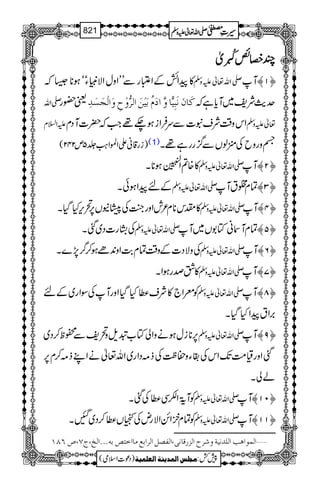 سیرتِ مصطفیٰ صلی اللہ تعالیٰ علیہ وسلم 821
چند خصائصِ کُبریٰ
﴿۱﴾ آپ صلی اللہ تعالیٰ علیہ وسلم کا پیدائش کے اعتبار سے ’’اول الانبیاء‘‘ ہونا جیسا کہ
حدیث شریف میں آیا ہے کہ کَانَ نَبِیًّا وَّ اٰدَمُ بَیْنَ الرُّوْحِ وَالْجَسَدِ یعنی حضور صلی اللہ
تعالیٰ علیہ وسلم اس وقت شرف نبوت سے سرفراز ہو چکے تھے جب کہ حضرت آدم علیہ السلام
جسم و روح کی منزلوں سے گزر رہے تھے۔ (1) (زرقانی علی المواہب جلد ۵ ص ۲۴۲)
﴿۲﴾ آپ صلی اللہ تعالیٰ علیہ وسلم کا خاتم النبیین ہونا۔
﴿۳﴾ تمام مخلوق آپ صلی اللہ تعالیٰ علیہ وسلم کے لئے پیدا ہوئی۔
﴿۴﴾ آپ صلی اللہ تعالیٰ علیہ وسلم کا مقدس نام عرش اور جنت کی پیشانیوں پر تحریر کیا گیا۔
﴿۵﴾ تمام آسمانی کتابوں میں آپ صلی اللہ تعالیٰ علیہ وسلم کی بشارت دی گئی۔
﴿۶﴾ آپ صلی اللہ تعالیٰ علیہ وسلم کی ولادت کے وقت تمام بت اوندھے ہو کر گر پڑے۔
﴿۷﴾ آپ صلی اللہ تعالیٰ علیہ وسلم کا شق صدر ہوا۔
﴿۸﴾ آپ صلی اللہ تعالیٰ علیہ وسلم کو معراج کا شرف عطا کیا گیا اور آپ کی سواری کے لئے
براق پیدا کیا گیا۔
﴿۹﴾ آپ صلی اللہ تعالیٰ علیہ وسلم پر نازل ہونے والی کتاب تبدیل و تحریف سے محفوظ کر دی
گئی اور قیامت تک اس کی بقاء و حفاظت کی ذمہ داری اللہ تعالیٰ نے اپنے ذمہ کرم پر
لے لی۔
﴿۱۰﴾ آپ صلی اللہ تعالیٰ علیہ وسلم کو آیۃ الکرسی عطا کی گئی۔
﴿۱۱﴾ آپ صلی اللہ تعالیٰ علیہ وسلم کو تمام خزائن الارض کی کنجیاں عطا کر دی گئیں۔
المواھب اللدنیة و شرح الزرقانی، الفصل الرابع مااختص به...الخ، ج۷، ص ۱۸۶
پیش کش: مجلس المدینة العلمیة (دعوت اسلامی)